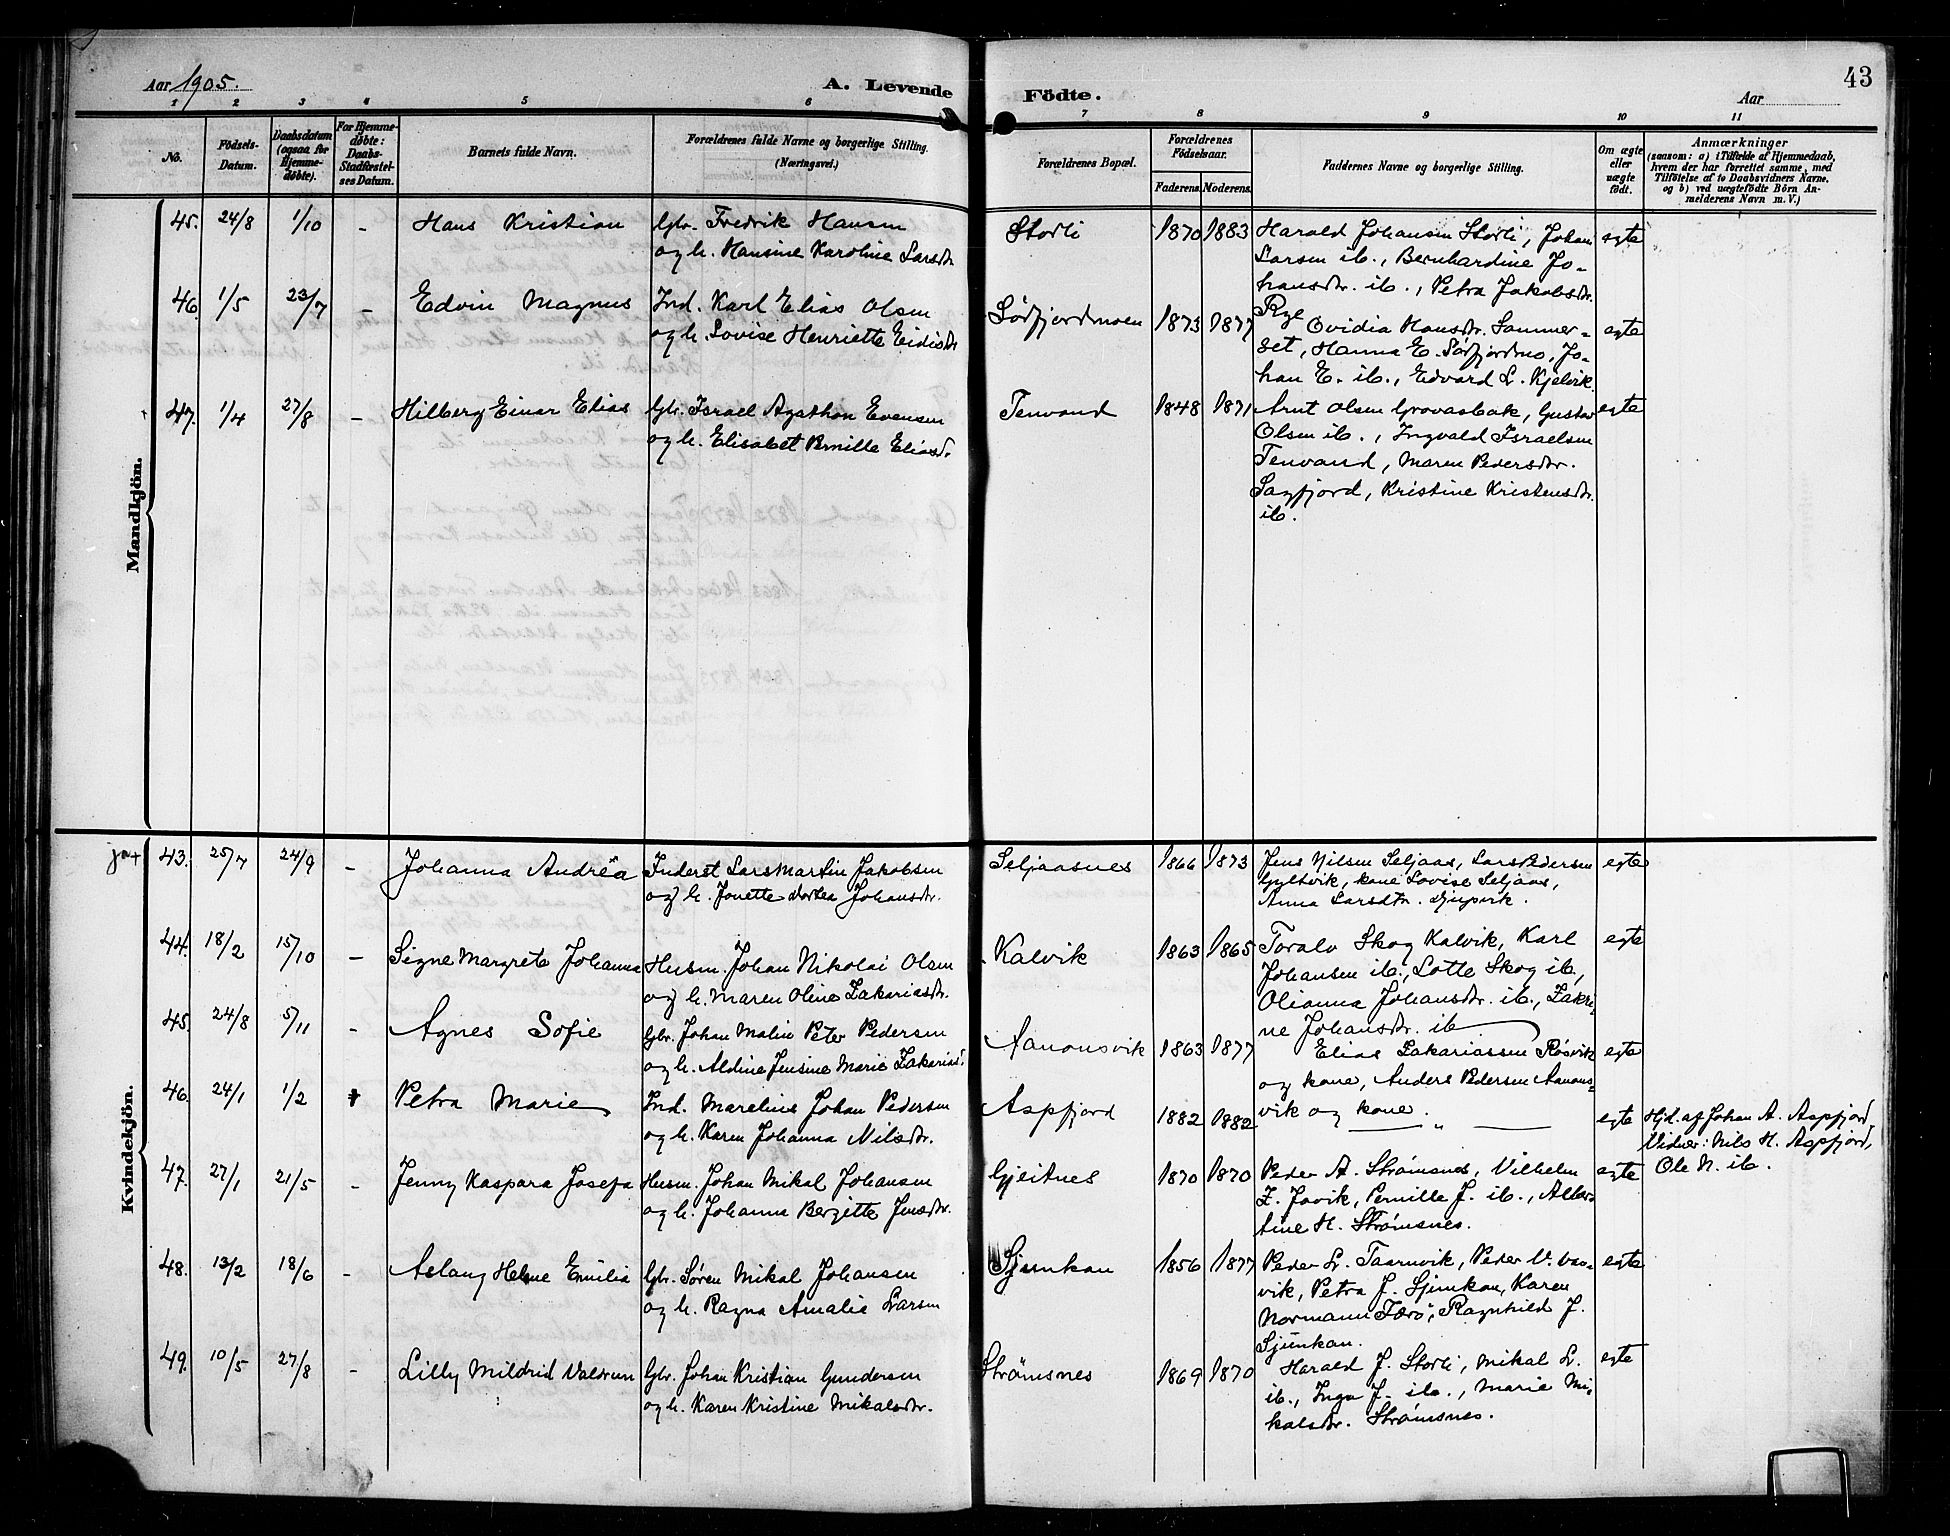 Aar 1905.
A. Levende
Födte.
Aar
43
1 2 3 4 5 6 7 8 9 10 11
No.
Födsels-
Datum.
Daabsdatum
(ogsaa for
Hjemme-
döbte).
For Hjemme-
döbte:
Daabs-
Stadfæstel-
ses Datum.
Barnets fulde Navn.
Forældrenes fulde Navne og borgerlige Stilling.
(Næringsvei.)
Forældrenes Bopæl.
Forældrenes
Födselsaar.
Faderens. Moderens.
Faddernes Navne og borgerlige Stilling.
Om ægte
eller
uægte
födt.
Anmærkninger
(saasom: a) i Tilfælde af Hjemmedaab,
hvem der har forrettet samme, med
Tilföielse af to Daabsvidners Navne,
og b) ved uægtefödte Börn An-
melderens Navn m. V.)
Mandkjön.
45. 24/8 1/10 - Hans Kristian
Gbr. Fredrik Hansen
og h. Hansine Karoline Larsdtr.
Storli 1870 1883
Harald Johansen Storli, Johan
Larsen ib., Bernhardine Jo-
hansdtr. ib., Petra Jakobsdtr.
Rye
egte
46. 1/5 23/7 - Edvin Magnus
Ind. Karl Elias Olsen
og h. Lovise Henriette Eidisdtr
Sørfjordmoen 1873 1877
Ovidia Hansdtr. Sommer-
set, Hanna E. Sørfjordmo, Jo-
han E. ib., Edvard L. Kjelvik.
egte
47. 1/4 27/8 - Hilberg Einar Elias
Gbr. Israel Agathon Evensen
og h. Elisabet Pernille Eliasd.
Tenvand 1848 1871
Arnt Olsen Grovasbak, Gustav
Olsen ib., Ingvald Israelsen
Tenvand, Maren Pedersdtr.
Sagfjord, Kristine Kristensdtr.
ib.
egte
Kvindekjön.
ja+ 43. 25/7 24/9 - Johanna Andrëa
Inderst Lars Martin Jakobsen
og h. Jonette Dortea Johansdtr.
Seljaasnes 1866 1873
Jens Nilsen Seljaas, Lars Pedersen
Gyltvik, kone Lovise Seljaas,
Anna Larsdtr. Djupvik.
egte
44. 18/2 15/10 - Signe Margrete Johanna
Husm. Johan Nikolai Olsen
og h. Maren Oline Zakariasdtr.
Kalvik 1863 1865
Toralv Skog Kalvik, Karl
Johansen ib., Lotte Skog ib,
Olianna Johansdtr. ib., Zakri-
ne Johansdtr. ib
egte
45. 24/8 5/11 - Agnes Sofie
Gbr. Johan Malin Peter Pedersen
og h. Aldine Jensine Marie Zakariasd.
Aanonsvik 1863 1877
Elias Zakariassen Røsvik
og kone, Anders Pedersen Aanons-
vik og kone.
egte
46. 24/1 1/2 Petra Marie
Ind. Marelius Johan Pedersen
og h. Karen Johanna Nilsdtr.
Aspfjord 1882 1882
— „ —
egte
Hjd. af Johan A. Aspfjord,
Vidner: Nils H. Aspfjord,
Ole N. ib.
47. 27/1 21/5 - Jenny Kaspara Josefa
Husm. Johan Mikal Johansen
og h. Johanna Bergitte Jensdtr.
Gjeitnes 1870 1870
Peder A. Strømsnes, Vilhelm
Z. Jovik, Pernille J. ib., Alber-
tine H. Strømsnes.
egte
48. 13/2 18/6 - Aslaug Helene Emilia
Gbr. Søren Mikal Johansen
og h. Ragna Amalie Larsen
Sjunkan 1856 1877
Peder L. Taarnvik, Peder V.
vik, Petra J. Sjunkan, Karen
Normann Færø, Ragnhild J.
Sjunkan.
egte
49. 10/5 27/8 - Lilly Mildrid Valdrun
Gbr. Johan Kristian Gundersen
og h. Karen Kristine Mikalsdtr.
Strømsnes 1869 1870
Harald J. Storli, Mikal L.
ib., Inga J. ib., Marie Mi-
kalsdtr. Strømsnes.
egte